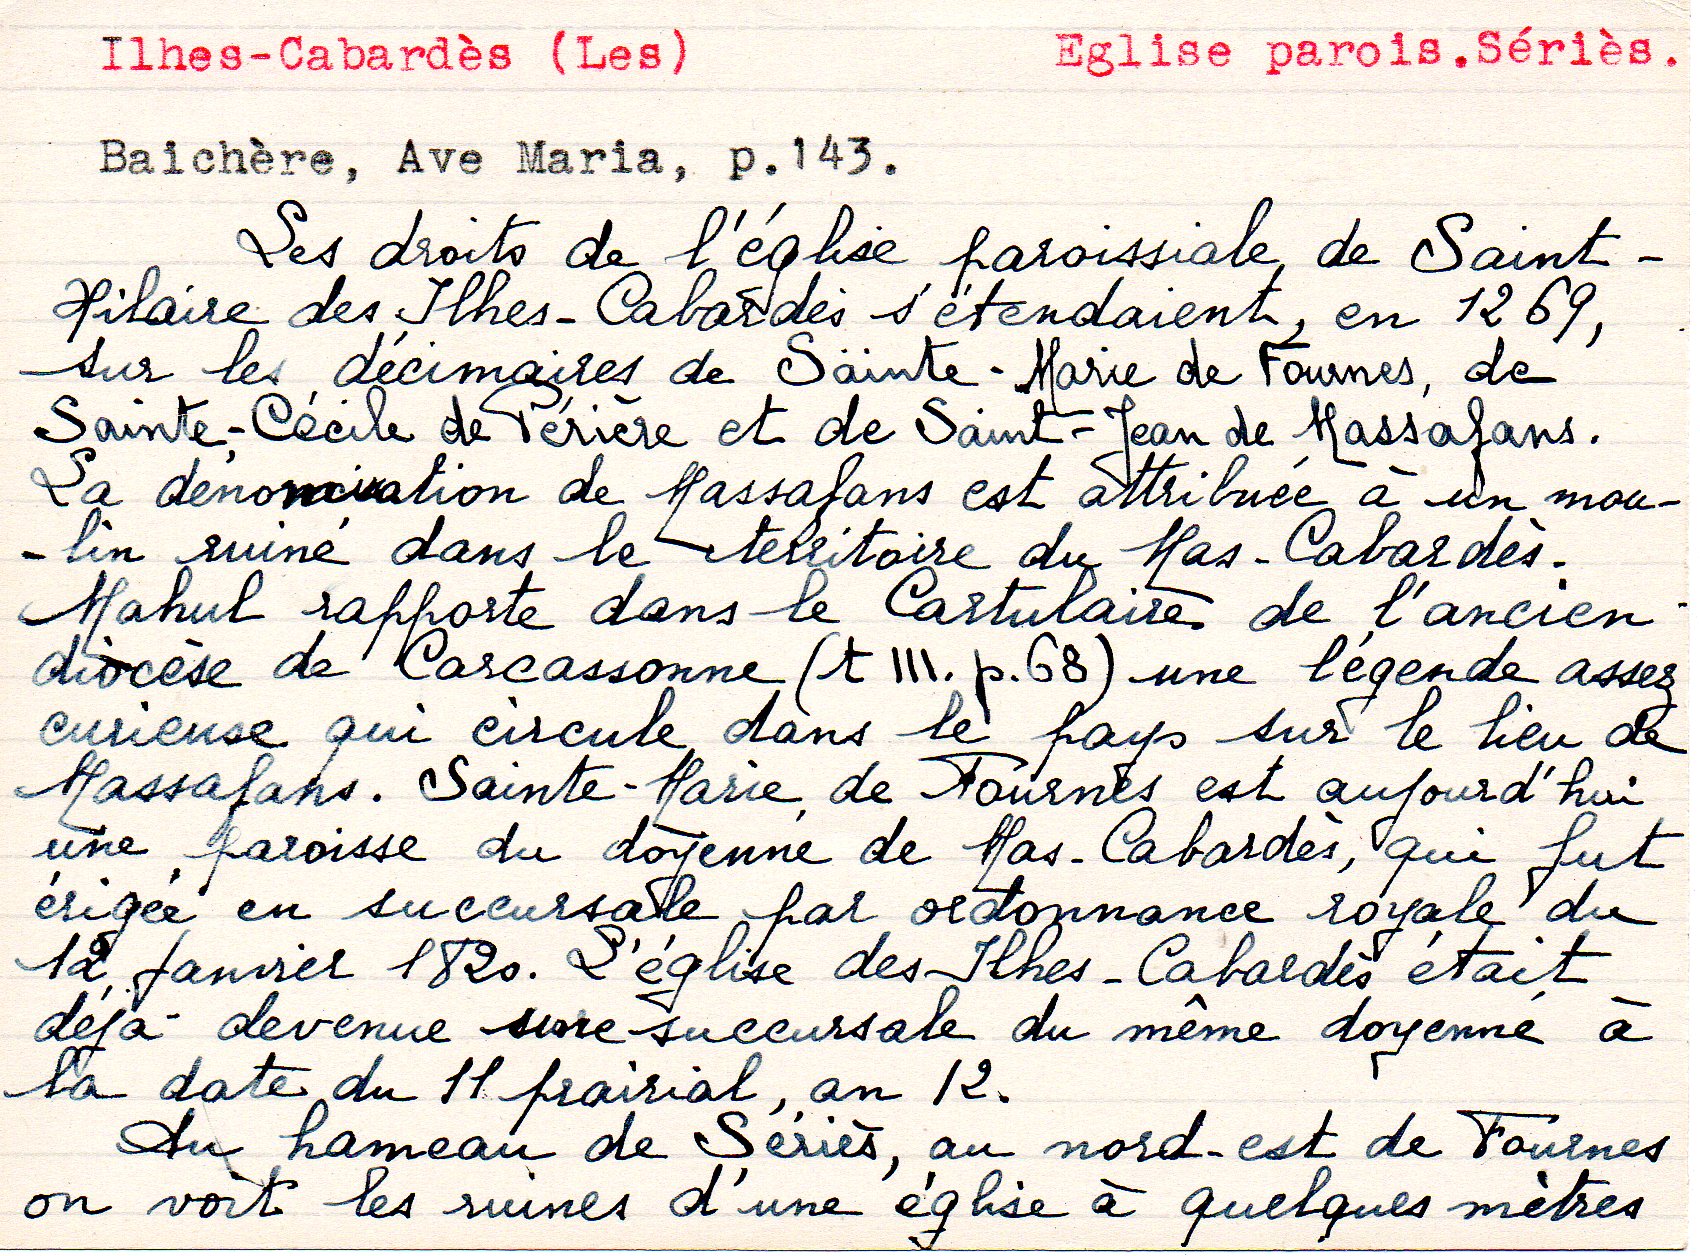 Ilhes-Cabardès (Les) Eglise parois.Sériès.
Baichère, Ave Maria, p.143.
Les droits de l'église paroissiale de Saint-
Hilaire des Ilhes-Cabardès s'étendaient, en 1269,
sur les décimaires de Sainte-Marie de Fournes, de
Sainte-Cécile de Périère et de Saint-Jean de Massafans.
La dénomination de Massafans est attribuée à un mou-
-lin ruiné dans le territoire du Mas-Cabardès.
Mahul rapporte dans le Cartulaire de l'ancien
diocèse de Carcassonne (t III. p.68) une légende assez
curieuse qui circule dans le pays sur le lieu de
Massafans. Sainte-Marie de Fournes est aujourd'hui
une paroisse du doyenné de Mas-Cabardès, qui fut
érigée en succursale par ordonnance royale du
12 janvier 1820. L'église des Ilhes-Cabardès était
déjà devenue une succursale du même doyenné à
la date du 11 prairial, an 12.
Au hameau de Sériès, au nord-est de Fournes
on voit les ruines d'une église à quelques mètres